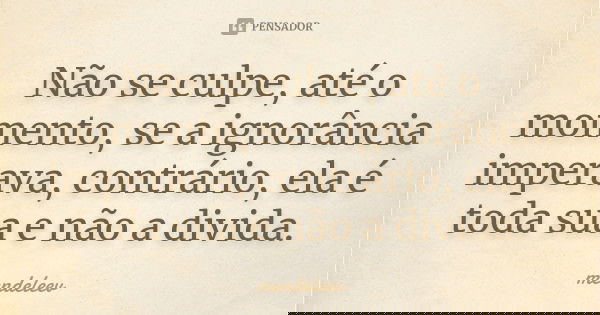 PENSADOR
Não se culpe, até o
momento, se a ignorância
imperava, contrário, ela é
toda sua e não a divida.
mendeleev